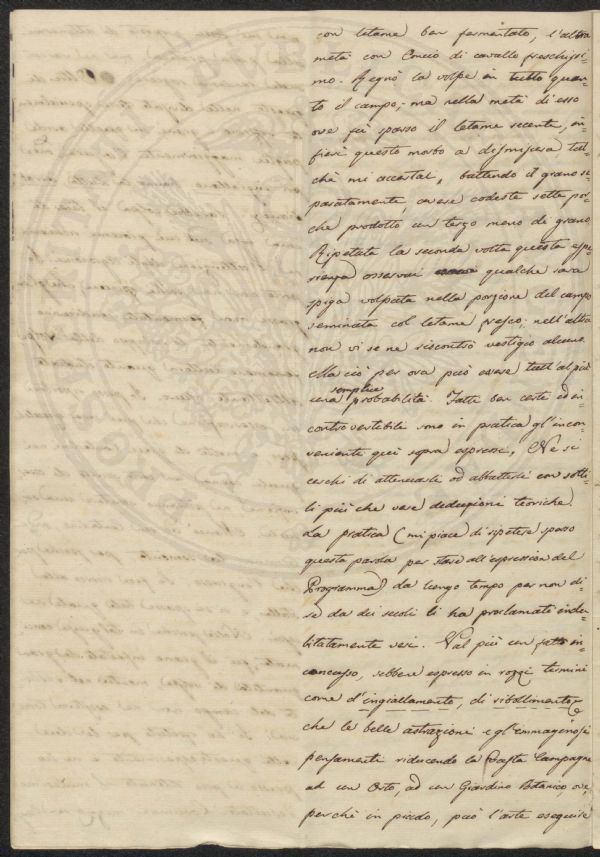 con letame ben fermentato, l'altra
metà con Concio di cavallo freschissi=
mo. Regnò la volpe in tutto quan=
to il campo; ma nella metà di esso
ove fu sparso il letame recente, in=
fierì questo morbo a dismisura tal=
chè mi accertai, battendo il grano se=
paratamente, avere codesta setta por=
che prodotto un terzo meno di grano
Ripetuta la seconda volta questa espe=
rienza osservai qualche rara
spiga volpata nella porzione del campo
seminata col letame fresco; nell'altra
non vi se ne riscontrò vestigio alcuno.
Ma ciò per ora può essere tutt'al più
semplice
una probabilità. Fatti ben certi ed in=
controvertibili sono in pratica gl'incon=
venienti qui sopra espressi, Nè si
cerchi di attenuarli od abbatterli con sotti=
li più che vere deduzioni teoriche.
La pratica (mi piace di ripetere spesso
questa parola per stare all'espression del
Programma) da lungo tempo per non di=
re da dei secoli li ha proclamati indu=
bitatamente veri. Val più un fatto in=
concusso, sebbene espresso in rozzi termini
come d'ingiallamento, di ribollimento
che le belle astrazioni e gl'immaginosi
pensamenti riducendo la vasta Campagna
ad un Orto, ad un Giardino Botanico, ove,
perchè in piccolo, può l'arte eseguire